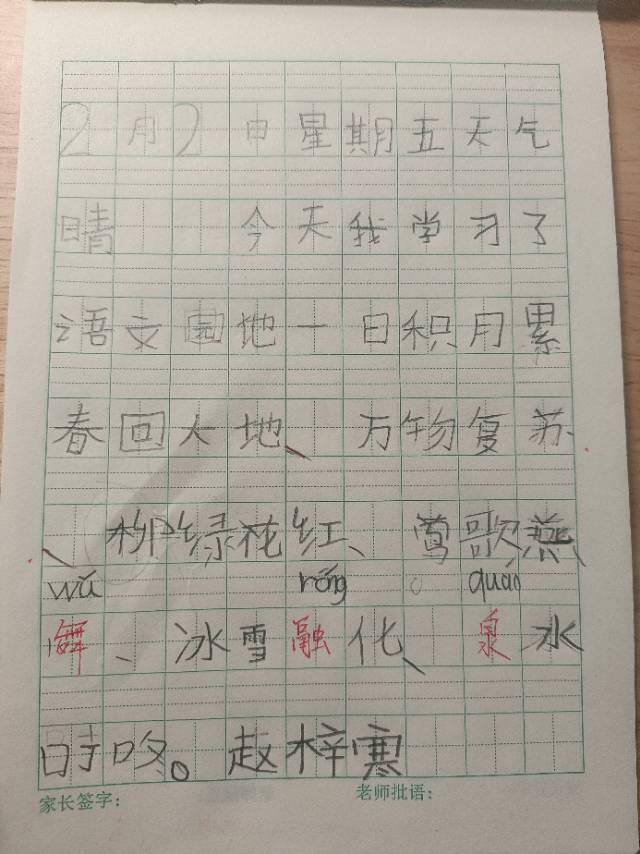 2月2日星期五天气
晴 今天我学习了
语文园地一日积月累
春回大地、万物复苏
、柳绿花红、莺歌燕
wǔ róng quán
舞、冰雪融化、泉水
叮咚。赵梓寒
家长签字: 老师批语: